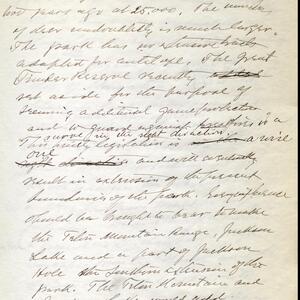 years ago at 25,000. The number
of deer undoubtedly is much larger.
The park has no extensive tracts
adapted for antelope. The great
Timber Reserve recently
set aside for the purpose of
securing additional game protection
and to guard against is "a
survey in the right direction"
this fruity legislation is a wise
one and will eventually
result in extension of the present
boundaries of the Park. Every
should be brought to bear to make
the Teton Mountain range, Jackson
Lake and a part of Jackson
Hole the Southern Extension of the
park. The Teton Mountains and